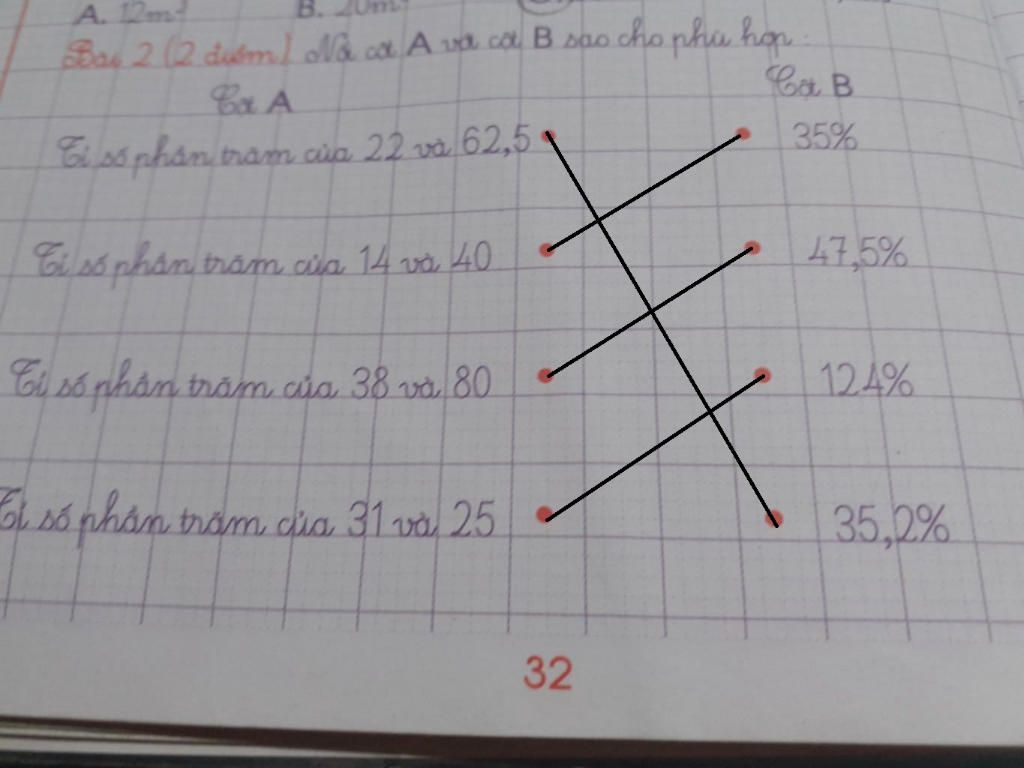 A. 12m² B. 20m²
Bài 2 (2 điểm) Nối cột A và cột B sao cho phù hợp:
Cột A Cột B
Tỉ số phần trăm của 22 và 62,5 35%
Tỉ số phần trăm của 14 và 40 47,5%
Tỉ số phần trăm của 38 và 80 124%
Tỉ số phần trăm của 31 và 25 35,2%
32